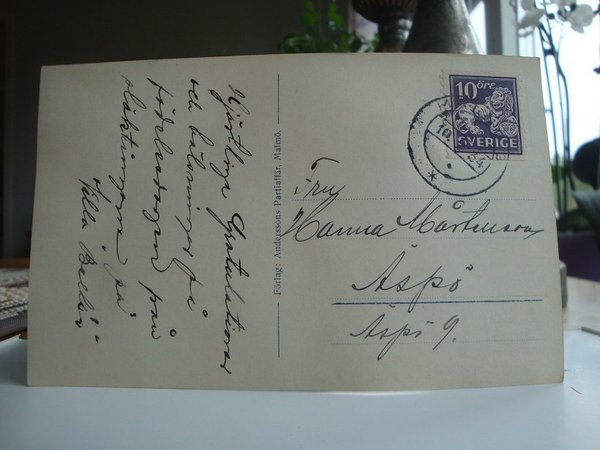 Hjärtliga Gratulationer
och hälsningar på
födelsedagen från
släktingarna på
"Villa Bellis"
Förlag: Anderssons Partiaffär, Malmö.
10 öre
SVERIGE
Fru
Hanna Mårtensson,
Äspö
Äspö 9.